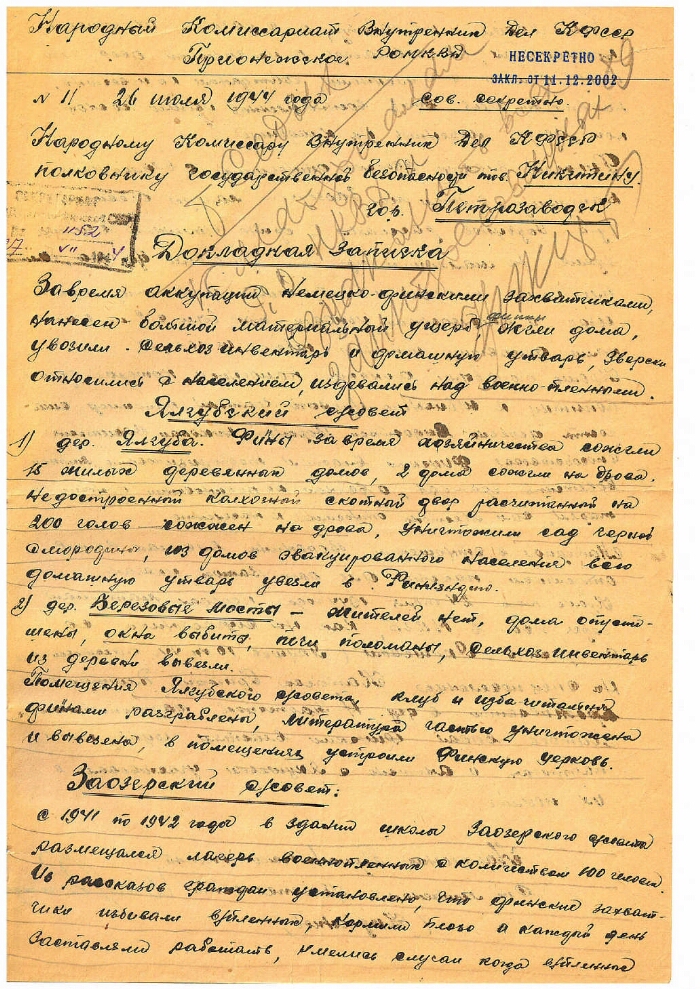 Народный Комиссариат Внутренних Дел КФССР
Прионежское РОНКВД
НЕСЕКРЕТНО
ЗАКЛ. ОТ 11.12.2002
N 11 26 июля 1944 года Сов. секретно.
Народному Комиссару Внутренних Дел КФССР
полковнику государственной безопасности тов. Никитину.
гор. Петрозаводск
Докладная записка
За время аккупации немецко-финскими захватчиками,
нанесен большой материальный ущерб финны жгли дома,
увозили сельхозинвентарь и домашную утварь, зверски
относились с населением, издевались над военно-пленными.
Ялгубский с/совет
1) дер. Ялгуба. Фины за время хозяйничества сожгли
15 жилых деревянных домов, 2 дома сожгли на дрова.
Недостроенный колхозный скотный двор расчитанный на
200 голов сожжен на дрова, уничтожили сад черной
смородины, из домов эвакуированного населения всю
домашную утварь увезли в Финляндию.
2) дер. Березовые мосты – жителей нет, дома опусто-
шены, окна выбиты, печи поломаны, сельхозинвентарь
из деревни вывезли.
Помещения Ялгубского с/совета, клуб и изба-читальня
финами разграблены, литература частью уничтожена
и вывезена, в помещениях устроили Финскую церковь.
Заозерский с/совет:
с 1941 по 1942 годы в здании школы Заозерского с/совета
размещался лагерь военнопленных в количестве 100 человек.
Из рассказов граждан установлено, что финские захват-
чики избивали в/пленных кормили плохо а каждый день
заставляли работать, имелись случаи когда в/пленные